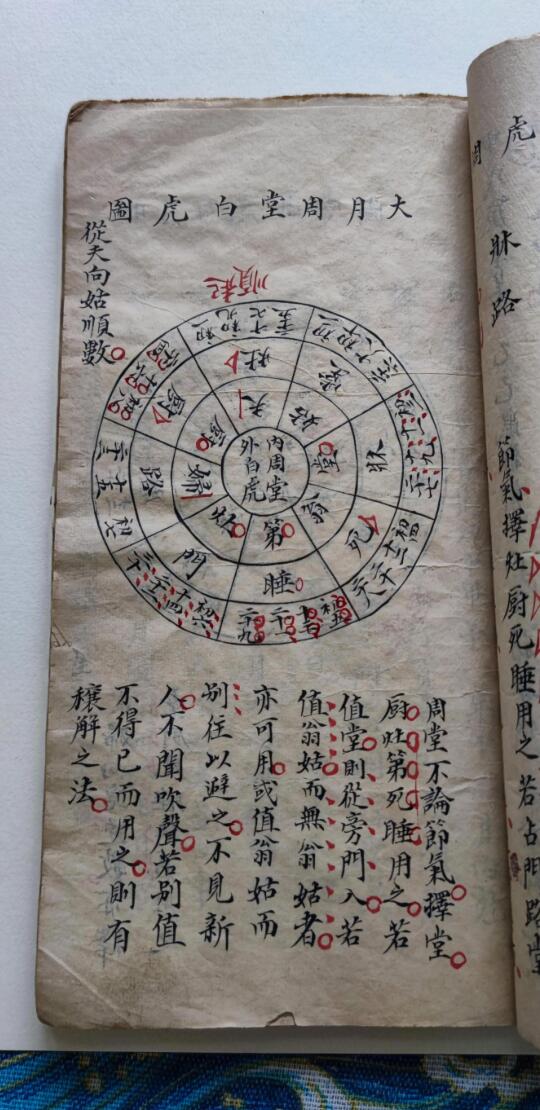 虎
周
牀路
節氣擇灶厨死睡用之若占門路堂
大月周堂白虎圖
從夫向姑順數
順起
內周堂
外白虎
夫
姑
堂
翁
第
灶
婦
厨
灶
堂
牀
死
睡
門
路
厨
周堂不論節氣擇堂
厨灶第死睡用之若
值堂則從旁門入若
值翁姑而無翁姑者
亦可用或值翁姑而
別往以避之不見新
人不聞吹聲若別值
不得已而用之則有
穰解之法